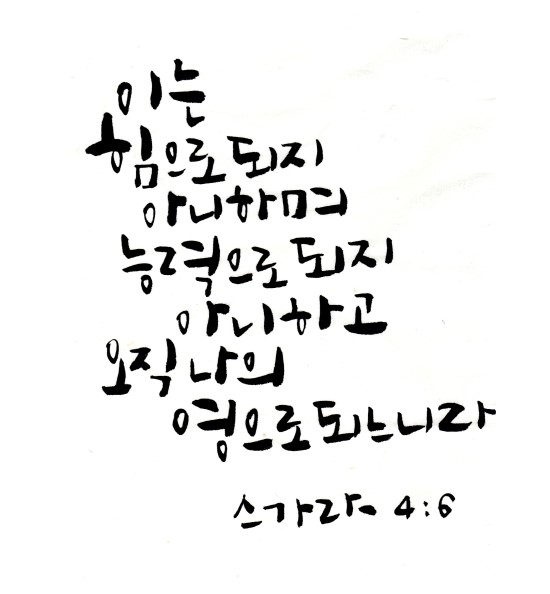 이는
힘으로 되지
아니하며
능력으로 되지
아니하고
오직 나의
영으로 되느니라
스가랴 4:6